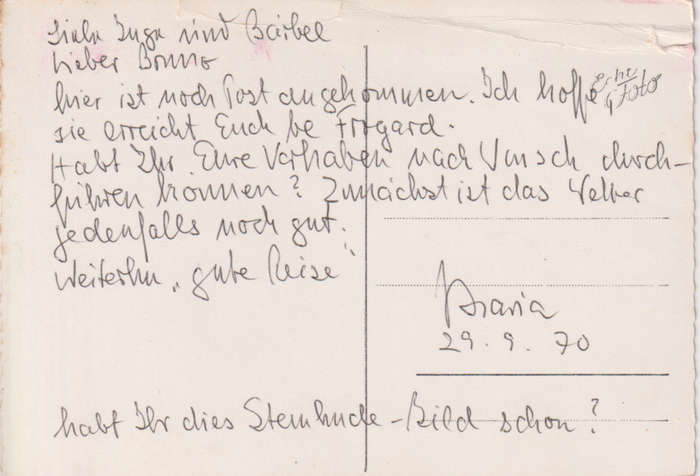 Liebe Inga und Bärbel
Lieber Bruno
hier ist noch Post angekommen. Ich hoffe
sie erreicht Euch be Frogard.
Habt Ihr Eure Vorhaben nach Wunsch durch-
führen können? Zunächst ist das Wetter
jedenfalls noch gut.
Weiterhin „gute Reise“
echt
Foto
Maria
29.9.70
habt Ihr dies Steinhude-Bild schon?